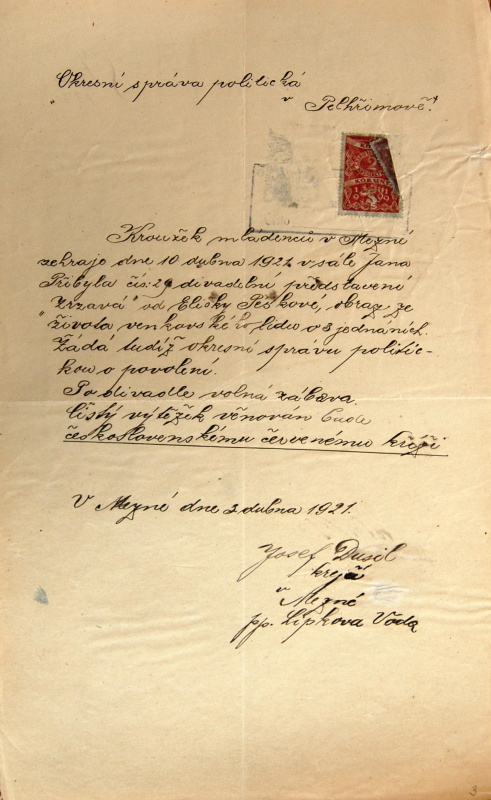 Okresní správa politická
v Pelhřimově.
Kroužek mládenců v Mezné
zehraje dne 10 dubna 1921 v sále Jana
Přibyla čís: 29 divadelní představení
"Zrzavá" od Elišky Peškové, obraz ze
života venkovského lidu o 3 jednáních.
Žádá tudíž okresní správu politic-
kou o povolení.
Po divadle volná zábava.
Čistý výtěžek věnován bude
československému červenému kříži
V Mezné dne 2 dubna 1921.
Josef Dusil
krejčí
v Mezné
pp. Lipkova Voda
3